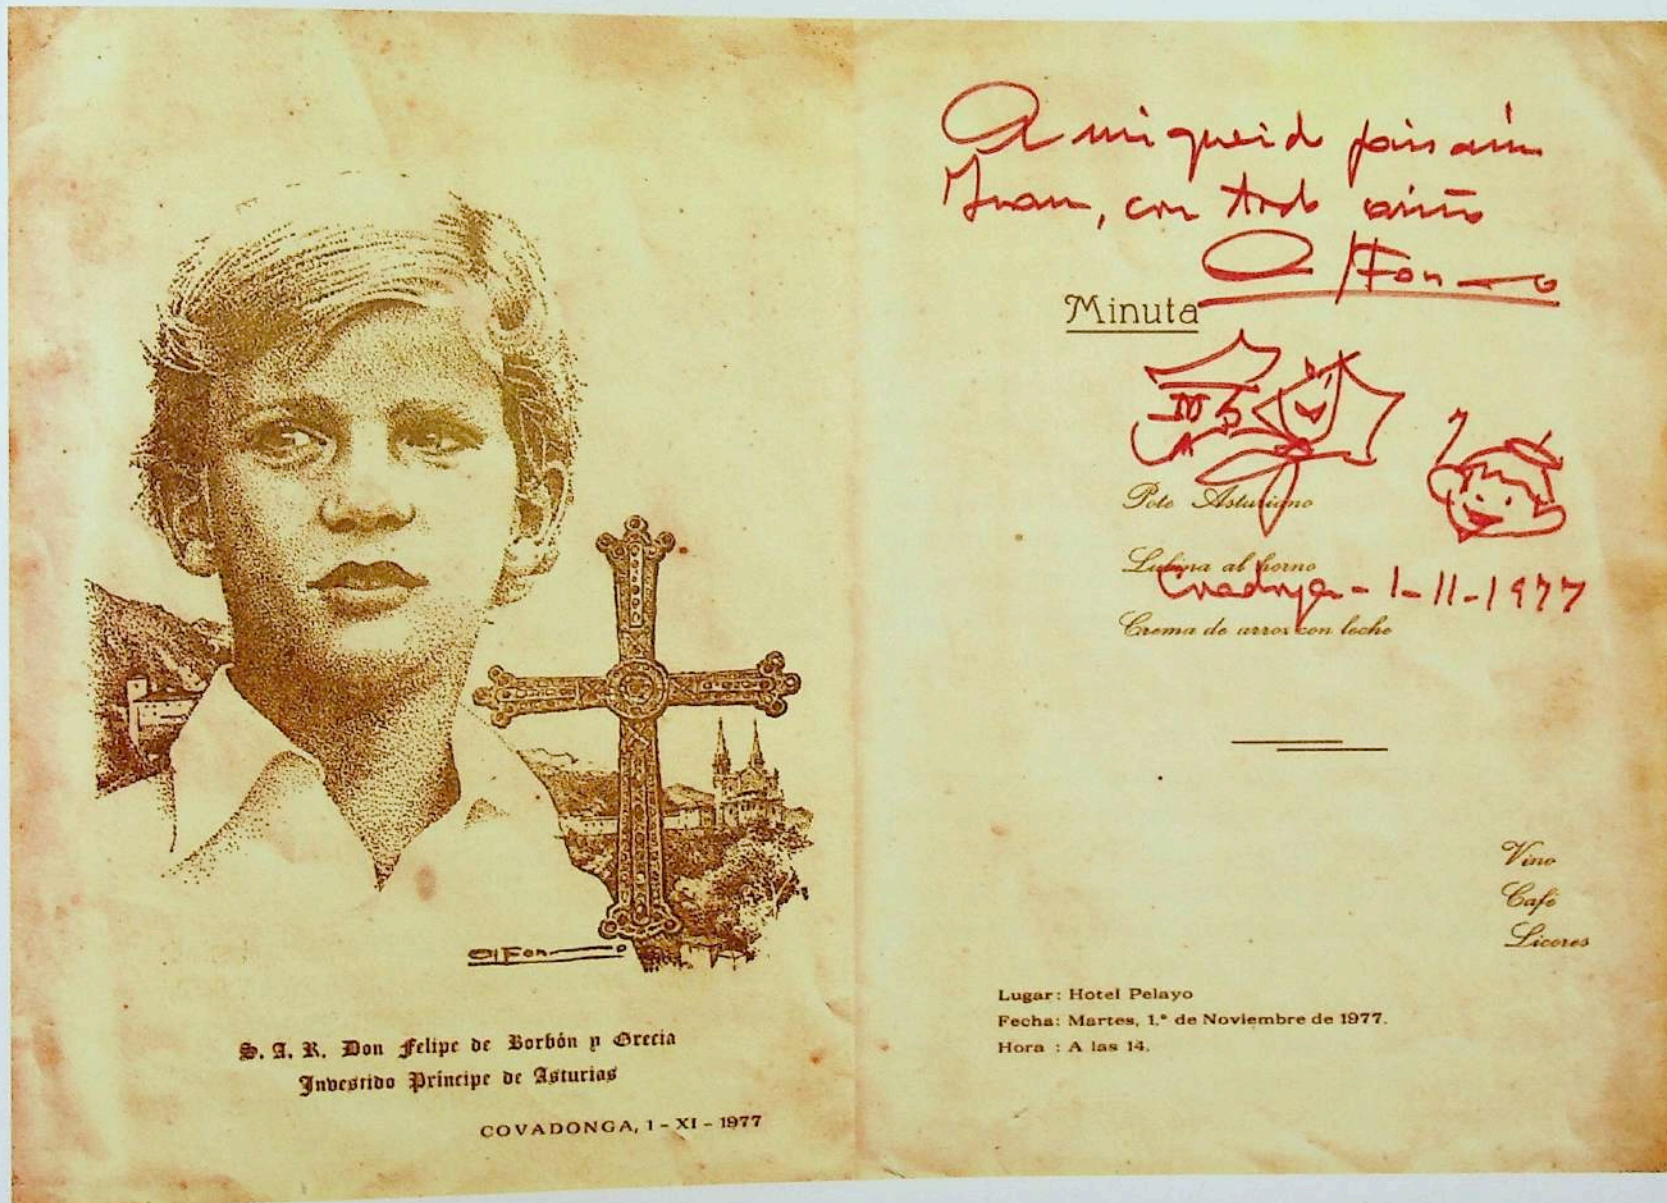 Alfonso
S. A. R. Don Felipe de Borbón y Grecia
Investido Príncipe de Asturias
COVADONGA, 1 - XI - 1977
A mi querido paisano
Juan, con todo cariño
Alfonso
Minuta
Pote Asturiano
Lubina al horno
Covadonga - 1-11-1977
Crema de arroz con leche
Vino
Café
Licores
Lugar: Hotel Pelayo
Fecha: Martes, 1.º de Noviembre de 1977.
Hora : A las 14.